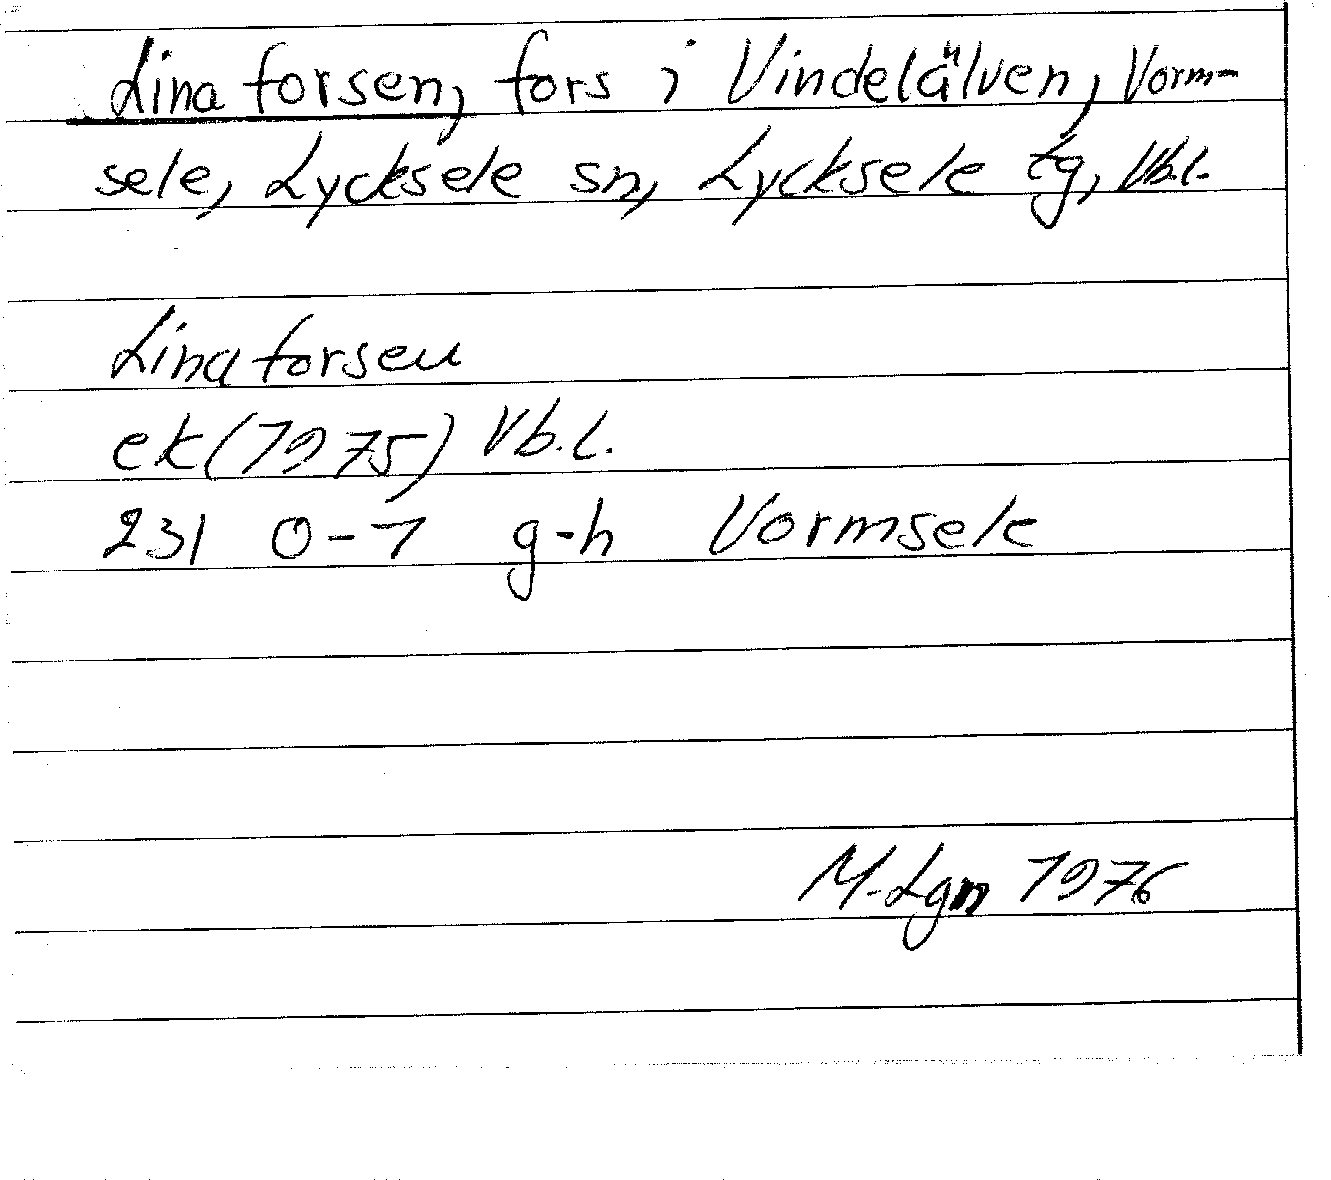 Linaforsen, fors i Vindelälven, Vorm-
sele, Lycksele sn, Lycksele tg, Vb.l.
Linaforsen
ek (1975) Vb.l.
231 0-1 g-h Vormsele
M-Lgn 1976